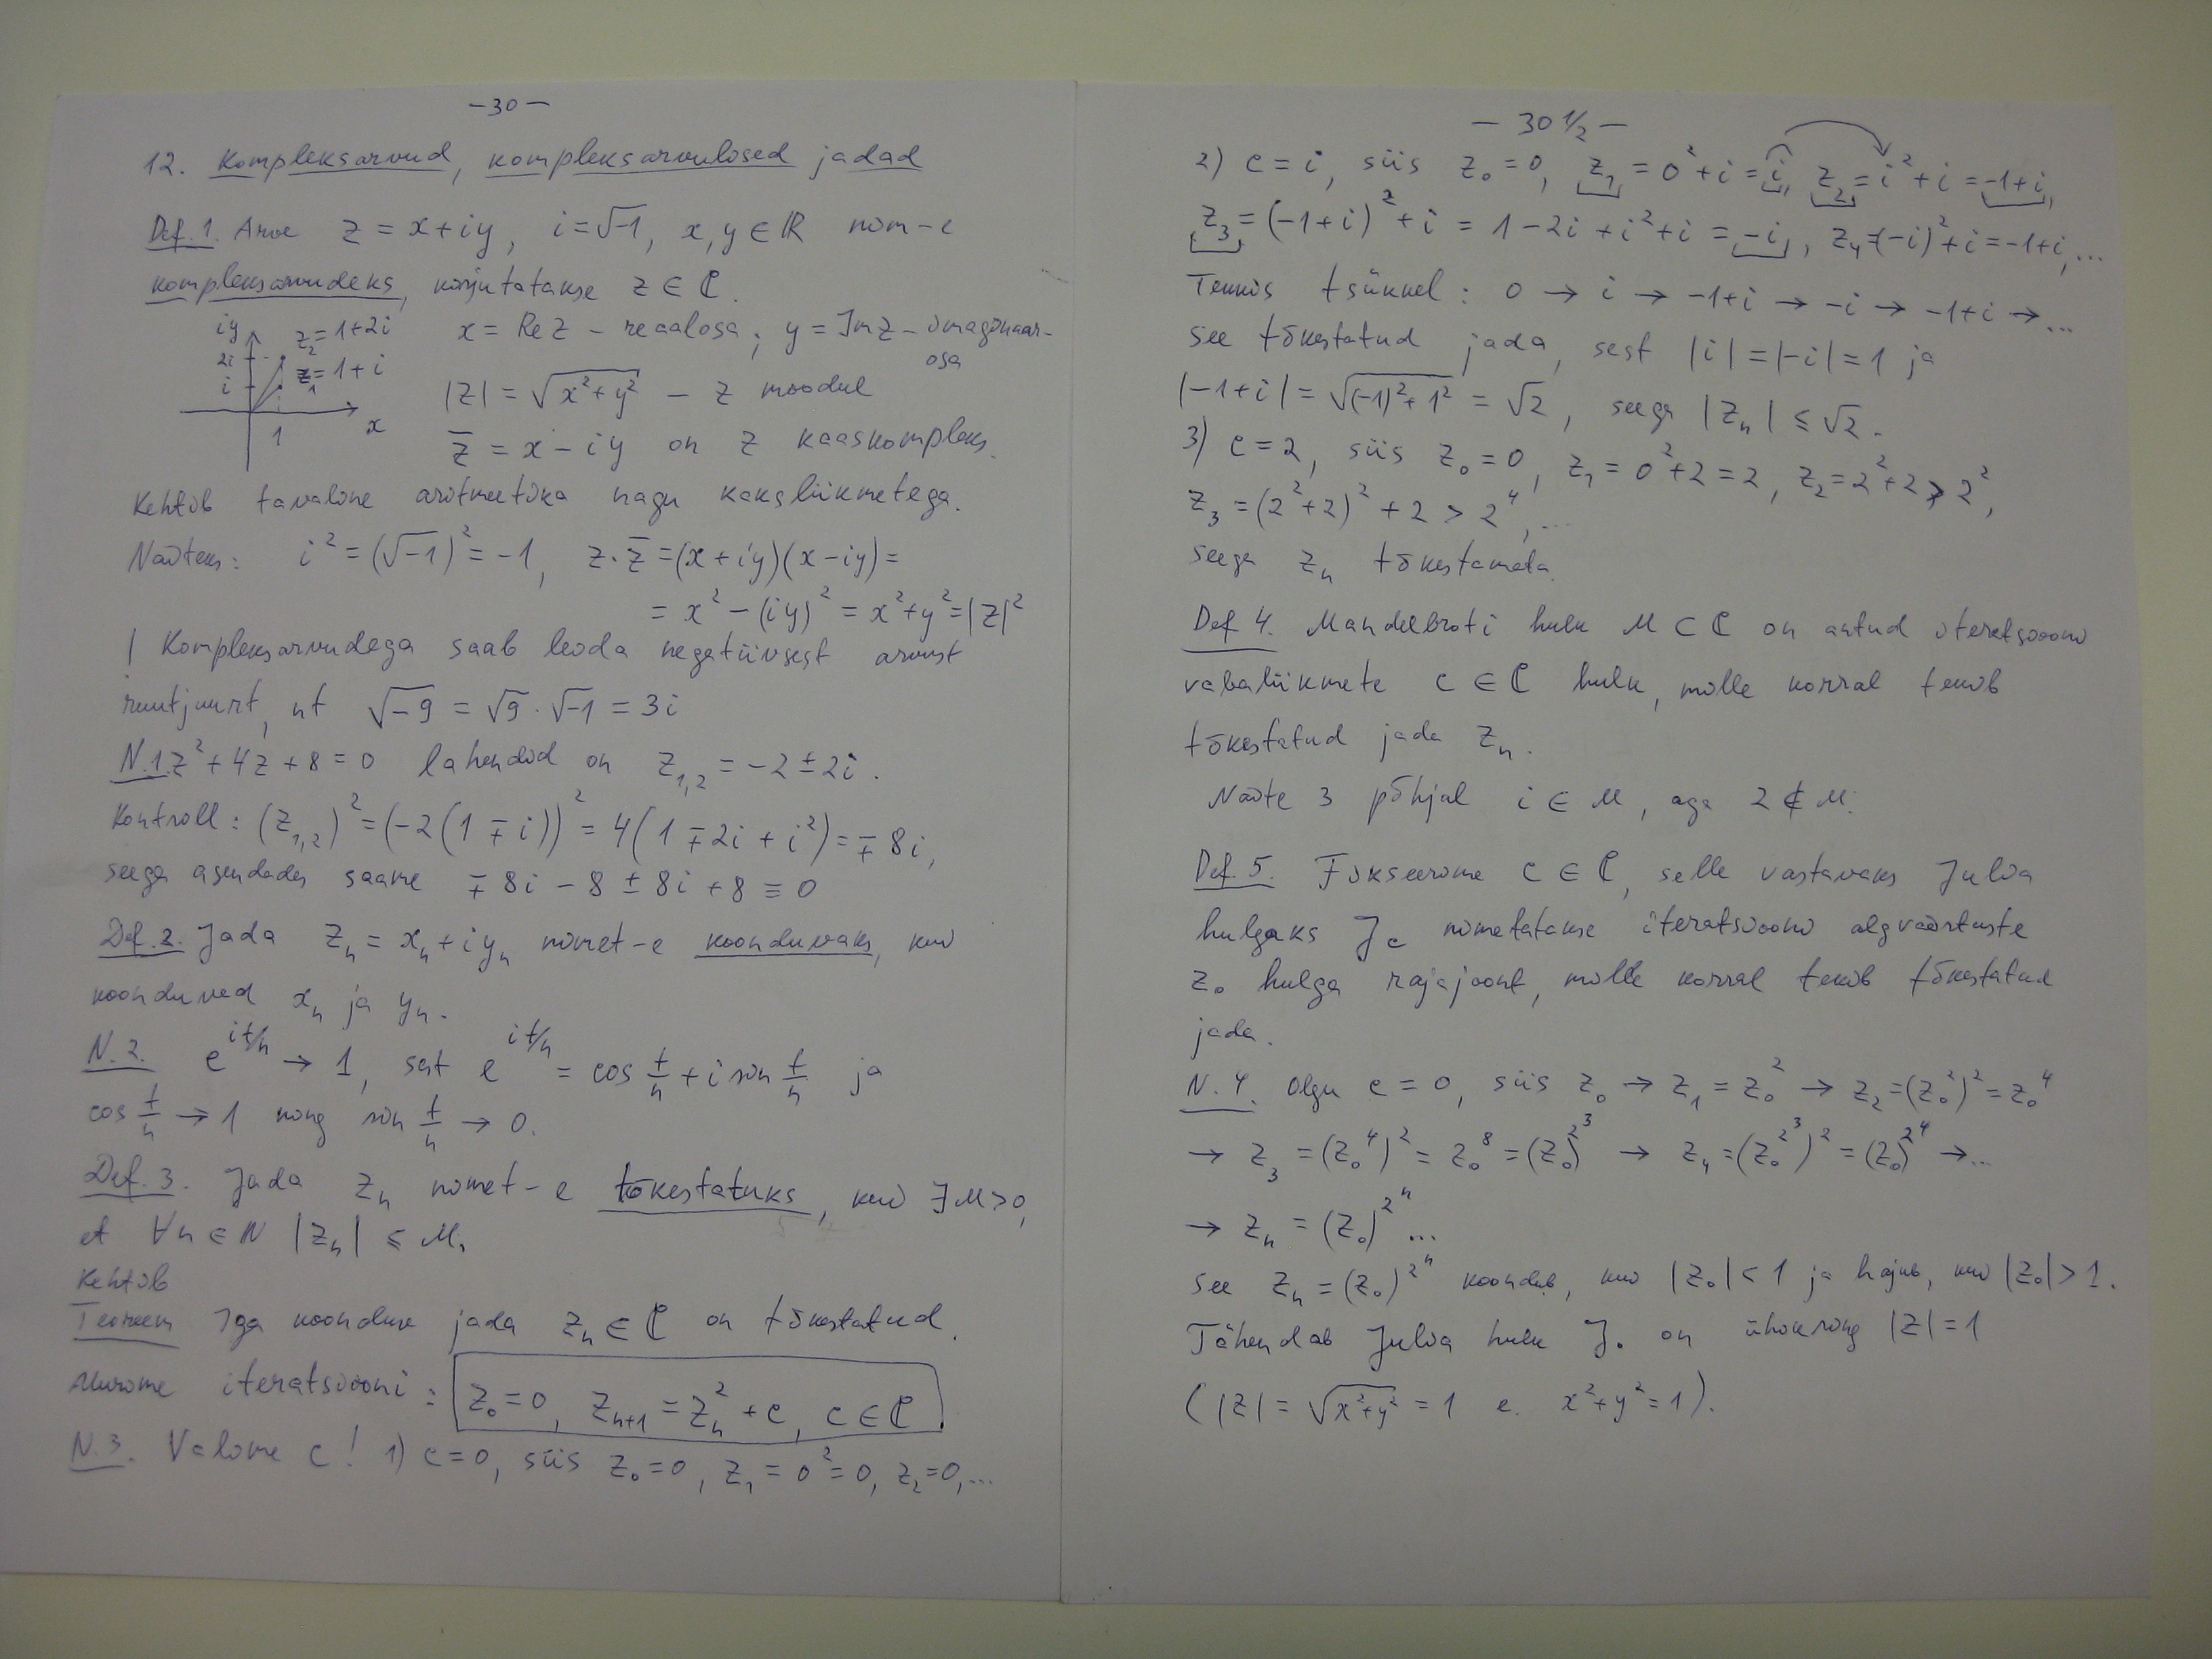 -30-
12. Kompleksarvud, kompleksarvulised jadad
Def. 1. Arve z = x+iy, i=√-1, x,y ∈ ℝ nim-e
kompleksarvudeks, kirjutatakse z ∈ ℂ.
iy 2i i 1 x z₂=1+2i z₁=1+i
x = Re z - reaalosa; y = Im z - imaginaar-
osa
|z| = √(x²+y²) - z moodul
z̄ = x - iy on z kaaskompleks.
Kehtib tavaline aritmeetika nagu kaksliikmetega.
Näiteks: i² = (√-1)² = -1, z·z̄ = (x+iy)(x-iy) =
= x² - (iy)² = x²+y² = |z|²
| Kompleksarvudega saab leida negatiivsest arvust
ruutjuurt, nt √-9 = √9 · √-1 = 3i
N.1. z² + 4z + 8 = 0 lahendid on z₁,₂ = -2 ± 2i.
Kontroll: (z₁,₂)² = (-2(1 ∓ i))² = 4(1 ∓ 2i + i²) = ∓ 8i,
seega asendades saame ∓ 8i - 8 ± 8i + 8 ≡ 0
Def. 2. Jada zₙ = xₙ + iyₙ nimet-e koonduvaks, kui
koonduvad xₙ ja yₙ.
N. 2. e^{it/n} → 1, sest e^{it/n} = cos t/n + i sin t/n ja
cos t/n → 1 ning sin t/n → 0.
Def. 3. Jada zₙ nimet-e tõkestatuks, kui ∃M>0,
et ∀n ∈ N |zₙ| ≤ M.
Kehtib
Teoreem Iga koonduv jada zₙ ∈ ℂ on tõkestatud.
Uurime iteratsiooni: z₀ = 0, zₙ₊₁ = zₙ² + c, c ∈ ℂ
N. 3. Valime c! 1) c=0, siis z₀=0, z₁ = 0² = 0, z₂=0,...
- 30 1/2 -
2) c = i, siis z₀ = 0, z₁ = 0²+i = i, z₂ = i²+i = -1+i,
z₃ = (-1+i)² + i = 1 - 2i + i² + i = -i, z₄=(-i)²+i = -1+i,...
Tekkis tsükkel: 0 → i → -1+i → -i → -1+i → ...
see tõkestatud jada, sest |i| = |-i| = 1 ja
|-1+i| = √((-1)²+1²) = √2, seega |zₙ| ≤ √2.
3) c = 2, siis z₀ = 0, z₁ = 0²+2 = 2, z₂ = 2²+2 > 2²,
z₃ = (2²+2)² + 2 > 2⁴, ...
seega zₙ tõkestamata.
Def 4. Mandelbroti hulk M ⊂ ℂ on antud iteratsiooni
vabaliikmete c ∈ ℂ hulk, mille korral tekib
tõkestatud jada zₙ.
Näite 3 põhjal i ∈ M, aga 2 ∉ M.
Def. 5. Fikseerime c ∈ ℂ, selle vastavaks Julia
hulgaks J_c nimetatakse iteratsiooni algväärtuste
z₀ hulga rajajoont, mille korral tekib tõkestatud
jada.
N. 4. Olgu c = 0, siis z₀ → z₁ = z₀² → z₂ = (z₀²)² = z₀⁴
→ z₃ = (z₀⁴)² = z₀⁸ = (z₀)^{2³} → z₄ = (z₀^{2³})² = (z₀)^{2⁴} → ...
→ zₙ = (z₀)^{2ⁿ} ...
see zₙ = (z₀)^{2ⁿ} koondub, kui |z₀| < 1 ja hajub, kui |z₀| > 1.
Tähendab Julia hulk J₀ on ühikring |z| = 1
(|z| = √(x²+y²) = 1 e. x²+y² = 1).